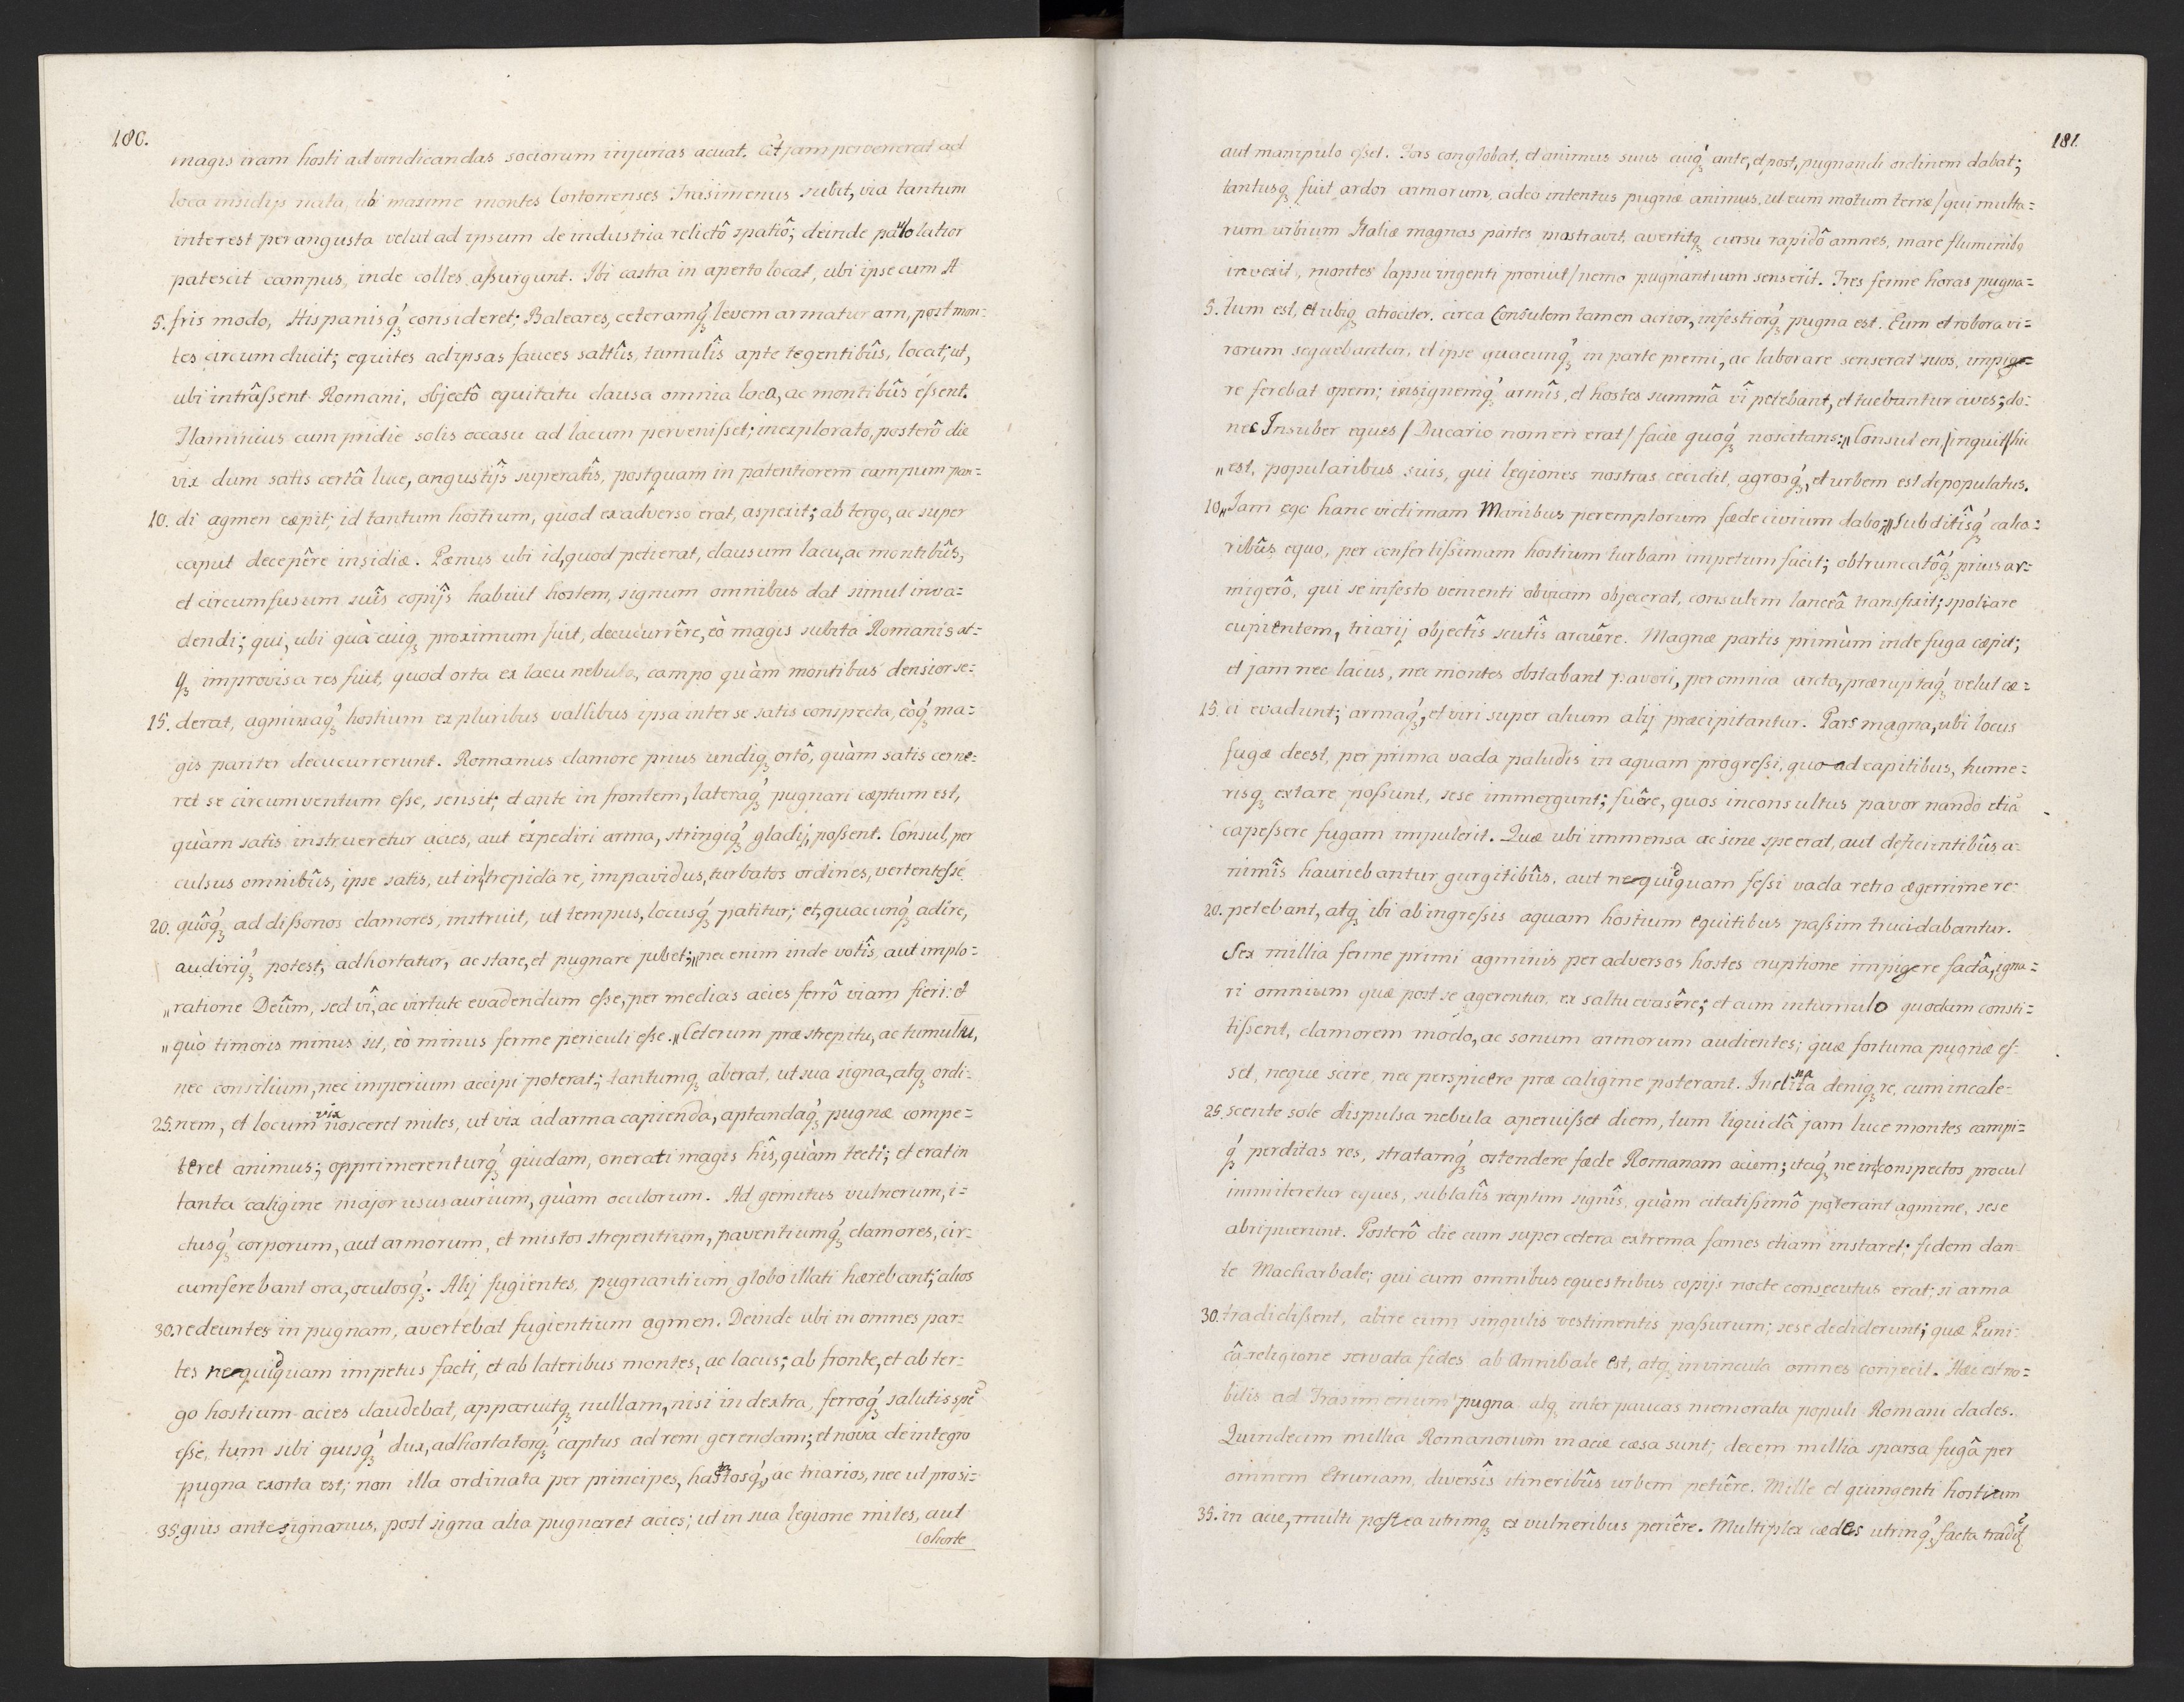 180.
magis iram hosti ad vindicandas sociorum injurias acuat. Et jam pervenerat ad
loca insidijs nata, ubi maxime montes Cortonenses Trasimenus subit, via tantum
interest perangusta velut ad ipsum de industria relictô spatiô; deinde paulo latior
patescit campus, inde colles assurgunt. Ibi castra in aperto locat, ubi ipse cum A
5. fris modo, Hispanisq́ꝫ consideret; Baleares, ceteramq́ꝫ levem armaturam, post mon=
tes circumducit; equites ad ipsas fauces saltûs, tumulîs apte tegentibûs, locat; ut,
ubi intrâssent Romani, objectô equitatu clausa omnia lacu, ac montibûs essent.
Flaminius cum pridie solis occasu ad lacum pervenisset; inexplorato, posterô die
vix dum satis certâ luce, angustijs superatîs, postquam in patentiorem campum pan=
10. di agmen cæpit; id tantum hostium, quod ex adverso erat, aspexit; ab tergo, ac super
caput decepêre insidiæ. Pænus ubi id, quod petierat, clausum lacu, ac montibûs,
et circumfusum suîs copijs habuit hostem, signum omnibus dat simul inva=
dendi; qui, ubi quà cuiqꝫ proximum fuit, decucurrêre, eò magis subita Romanis at=
qꝫ improvisa res fuit, quod orta ex lacu nebula, campo quàm montibus densior se=
15. derat, agminaq́ꝫ hostium ex pluribus vallibus ipsa inter se satis conspecta, eòq́ꝫ ma=
gis pariter decucurrerunt. Romanus clamore prius undiqꝫ ortô, quàm satis cerne=
ret se circumventum esse, sensit; et ante in frontem, lateraq́ꝫ pugnari cæptum est,
quàm satis instrueretur acies, aut expediri arma, stringiq́ꝫ gladij possent. Consul, per
culsus omnibûs, ipse satis, ut in trepida re, impavidus, turbatos ordines, vertente se
20. quôq́ꝫ ad dissonos clamores, instruit, ut tempus, locusq́ꝫ patitur; et, quacunq́ꝫ adire,
audiriq́ꝫ potest, adhortatur, ac stare, et pugnare jubet; „nec enim inde votîs, aut implo=
„ratione Deûm, sed vî, ac virtute evadendum esse, per medias acies ferrô viam fieri: et
„quò timoris minus sit, eò minus ferme periculi esse. „Ceterum præ strepitu, ac tumultu,
nec consilium, nec imperium accipi poterat; tantumqꝫ aberat, ut sua signa, atqꝫ ordi=
25. nem, et locum vix nosceret miles, ut vix ad arma capienda, aptandaq́ꝫ pugnæ compe=
teret animus; opprimerenturq́ꝫ quidam, onerati magis hîs, quàm tecti; et erat in
tanta caligine major usus aurium, quàm oculorum. Ad gemitus vulnerum, i=
ctusq́ꝫ corporum, aut armorum, et mistos strepentium, paventiumq́ꝫ clamores, cir=
cumferebant ora, oculosq́ꝫ. Alij fugientes, pugnantium globo illati hærebant; alios
30. redeuntes in pugnam, avertebat fugientium agmen. Deinde ubi in omnes par=
tes nequidquam impetus facti, et ab lateribus montes, ac lacus; ab fronte, et ab ter=
go hostium acies claudebat, apparuitqꝫ nullam, nisi in dextra, ferroq́ꝫ salutis spē
esse, tum sibi quisq́ꝫ dux, adhortatorq́ꝫ captus ad rem gerendam; et nova de integro
pugna exorta est; non illa ordinata per principes, hastatosq́ꝫ, ac triarios, nec ut pro si=
35. gnis antesignanus, post signa alia pugnaret acies; ut in sua legione miles, aut
Cohorte
181
aut manipulo esset. Fors conglobat, et animus suus cuiq́ꝫ ante, et post, pugnandi ordinem dabat;
tantusqꝫ fuit ardor armorum, adeo intentus pugnæ animus, ut eum motum terræ / qui multa=
rum urbium Italiæ magnas partes prostravit, avertitqꝫ cursu rapidô amnes, mare fluminibꝫ
invexit, montes lapsu ingenti proruit / nemo pugnantium senserit. Tres ferme horas pugna=
5. tum est, et ubiqꝫ atrociter. circa Consulem tamen acrior, infestiorq́ꝫ pugna est. Eum et robora vi=
rorum sequebantur, et ipse quacunq́ꝫ in parte premi, ac laborare senserat suos, impig=
re ferebat opem; insignemq́ꝫ armîs, et hostes summâ vî petebant, et tuebantur cives; do=
nec Insuber eques / Ducario nomen erat / facie quoq́ꝫ noscitans: „Consul en, / inquit / hic
„est, popularibus suis, qui legiones nostras cecidit, agrosq́ꝫ, et urbem est depopulatus.
10. „Jam ego hanc victimam Manibus peremptorum fæde civium dabo; „Subditîsq́ꝫ calca=
ribûs equo, per confertissimam hostium turbam impetum facit; obtruncatôq́ꝫ prius ar=
migerô, qui se infesto venienti obviam objecerat, consulem lanceâ transfixit; spoliare
cupientem, triarij objectîs scutîs arcuêre. Magnæ partis primùm inde fuga cæpit;
et jam nec lacus, nec montes obstabant pavori, per omnia arcta, præruptaq́ꝫ velut cæ=
15. ci evadunt; armaq́ꝫ, et viri super alium alij præcipitantur. Pars magna, ubi locus
fugæ deest, per prima vada paludis in aquam progressi, quoad capitibus, hume=
risqꝫ extare possunt, sese immergunt; fuêre, quos inconsultus pavor nando etiā
capessere fugam impulerit. Quæ ubi immensa ac sine spe erat, aut deficientibûs a=
nimîs hauriebantur gurgitibûs, aut nequidquam fessi vada retro ægerrime re=
20. petebant, atqꝫ ibi ab ingressis aquam hostium equitibus passim trucidabantur.
Sex millia ferme primi agminis per adversos hostes eruptione impigere factâ, igna=
ri omnium quæ post se agerentur, ex saltu evasêre; et cum in tumulo quodam consti=
tissent, clamorem modo, ac sonum armorum audientes; quæ fortuna pugnæ es=
set, neque scire, nec perspicere præ caligine poterant. Inclinata deniqꝫ re, cum incale=
25. scente sole dispulsa nebula aperuisset diem, tum liquidâ jam luce montes campi=
q́ꝫ perditas res, stratamq́ꝫ ostendere fæde Romanam aciem; itaq́ꝫ ne in conspectos procul
immitteretur eques, sublatîs raptim signîs, quàm citatissimô poterant agmine, sese
abripuerunt. Posterô die cum super cetera extrema fames etiam instaret; fidem dan
te Macharbale; qui cum omnibus equestribus copijs nocte consecutus erat; si arma
30. tradidissent, abire cum singulis vestimentis passurum; sese dediderunt; quæ Puni=
câ religione servata fides ab Annibale est, atqꝫ in vincula omnes conjecit. Hæc est no=
bilis ad Trasimenum pugna, atqꝫ inter paucas memorata populi Romani clades.
Quindecim millia Romanorum in acie cæsa sunt; decem millia sparsa fugâ per
omnem Etruriam, diversîs itineribûs urbem petiêre. Mille et quingenti hostium
35. in acie, multi postea utrinqꝫ ex vulneribus periêre. Multiplex cædes utrinq́ꝫ facta tradit̄